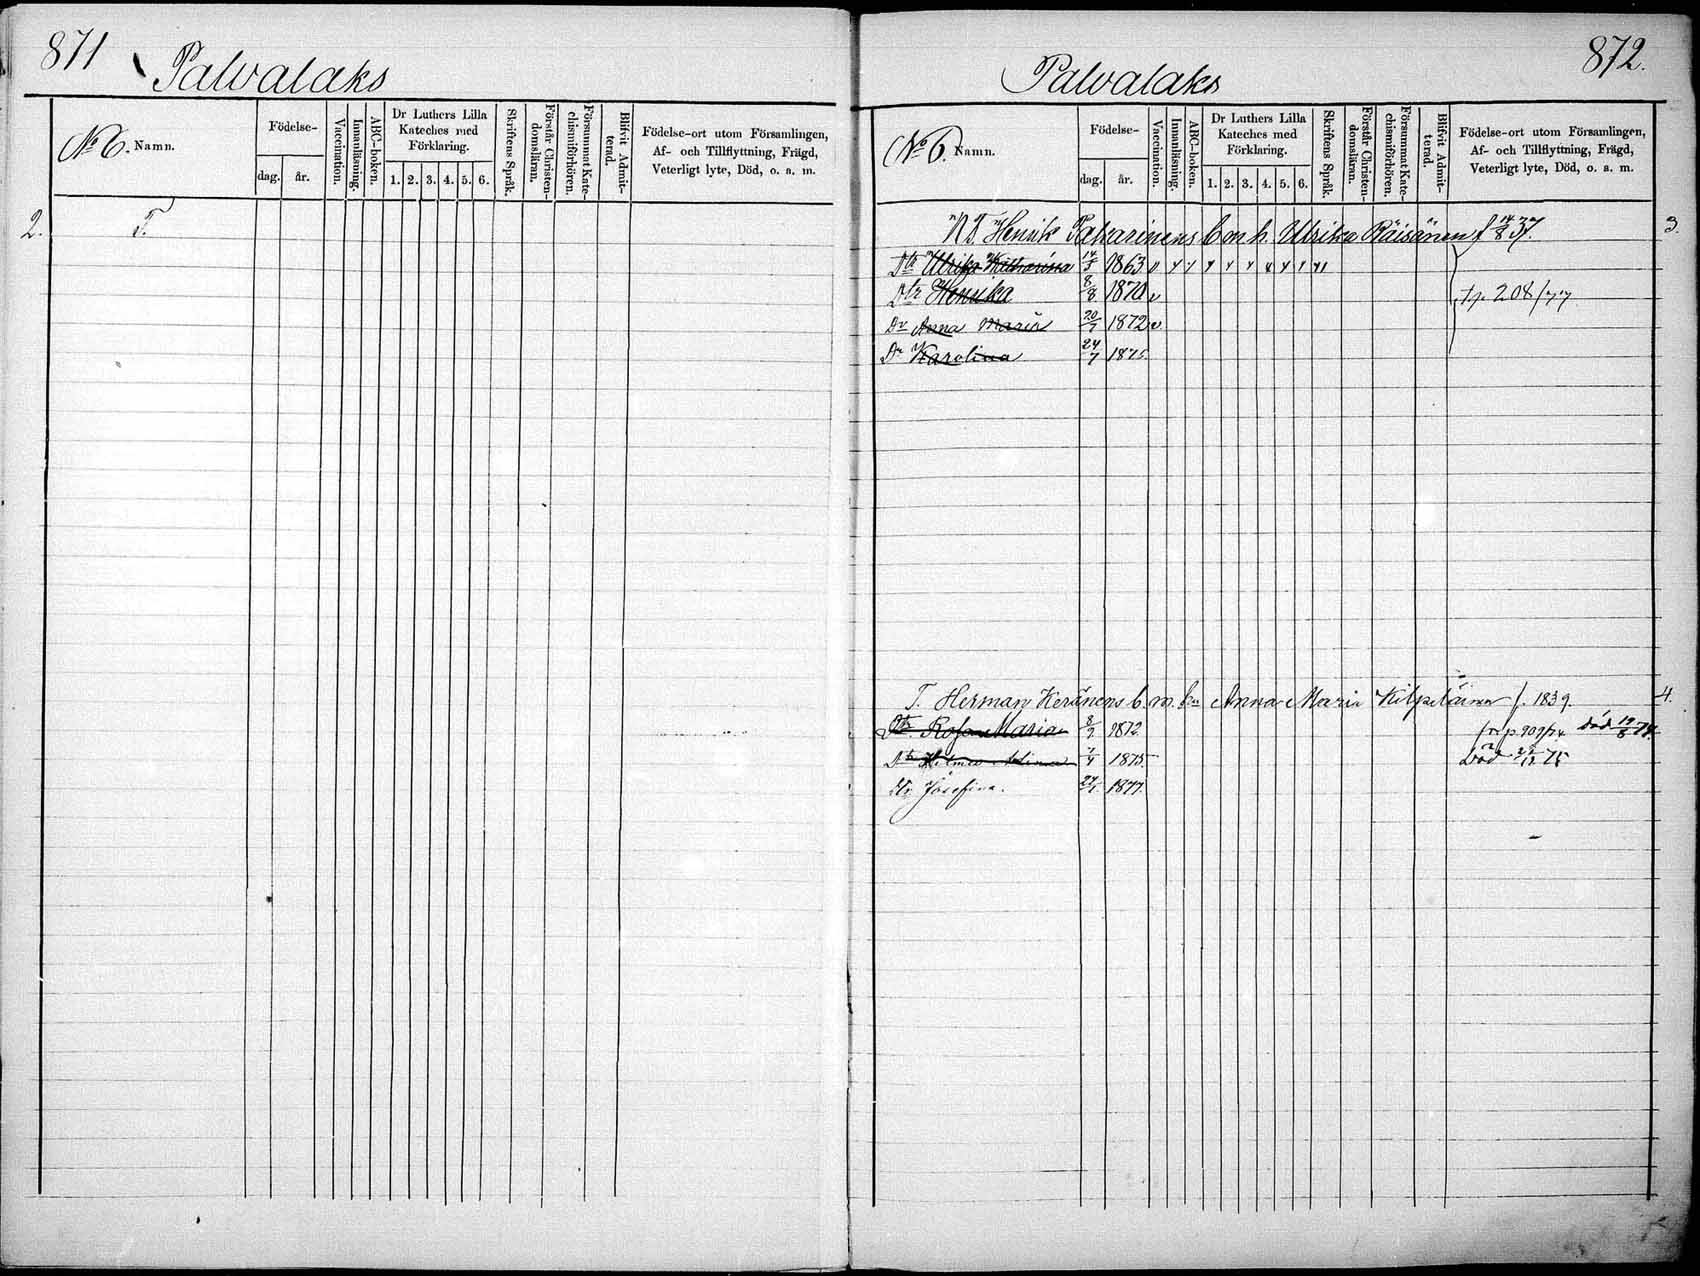 871
Palvalaks
No 6.
Namn.
Födelse-
dag.
år.
Vaccination.
Innanläsning.
ABC-boken.
Dr Luthers Lilla
Kateches med
Förklaring.
1. 2. 3. 4. 5. 6.
Skriftens Språk.
Förstår Christen-
domsläran.
Försummat Kate-
chismiförhören.
Blifvit Admit-
terad.
Födelse-ort utom Församlingen,
Af- och Tillflyttning, Frägd,
Veterligt lyte, Död, o. a. m.
2. T.
872.
Palvalaks
No 6.
Namn.
Födelse-
dag.
år.
Vaccination.
Innanläsning.
ABC-boken.
Dr Luthers Lilla
Kateches med
Förklaring.
1. 2. 3. 4. 5. 6.
Skriftens Språk.
Förstår Christen-
domsläran.
Försummat Kate-
chismiförhören.
Blifvit Admit-
terad.
Födelse-ort utom Församlingen,
Af- och Tillflyttning, Frägd,
Veterligt lyte, Död, o. a. m.
Henrik Pakarinens b m h. Ulrika Räisänen f 14/8 37. 3.
Dtr Ulrika Katharina 14/3 1863
Dtr Henrika 8/8 1870 v
208/77
Dr Anna Maria 20/7 1872 v
Dr Karolina 24/7 1875.
T. Herman Keränens b. m. Anna Maria Kilpeläinen f. 1839. 4.
Dtr Rosa Maria 8/9 1872 p. 909/74 Död 19/8 74.
Dtr Hilma Alina 7/4 1875 Död 22/12 75
Dtr Josefina. 24/1 1877.